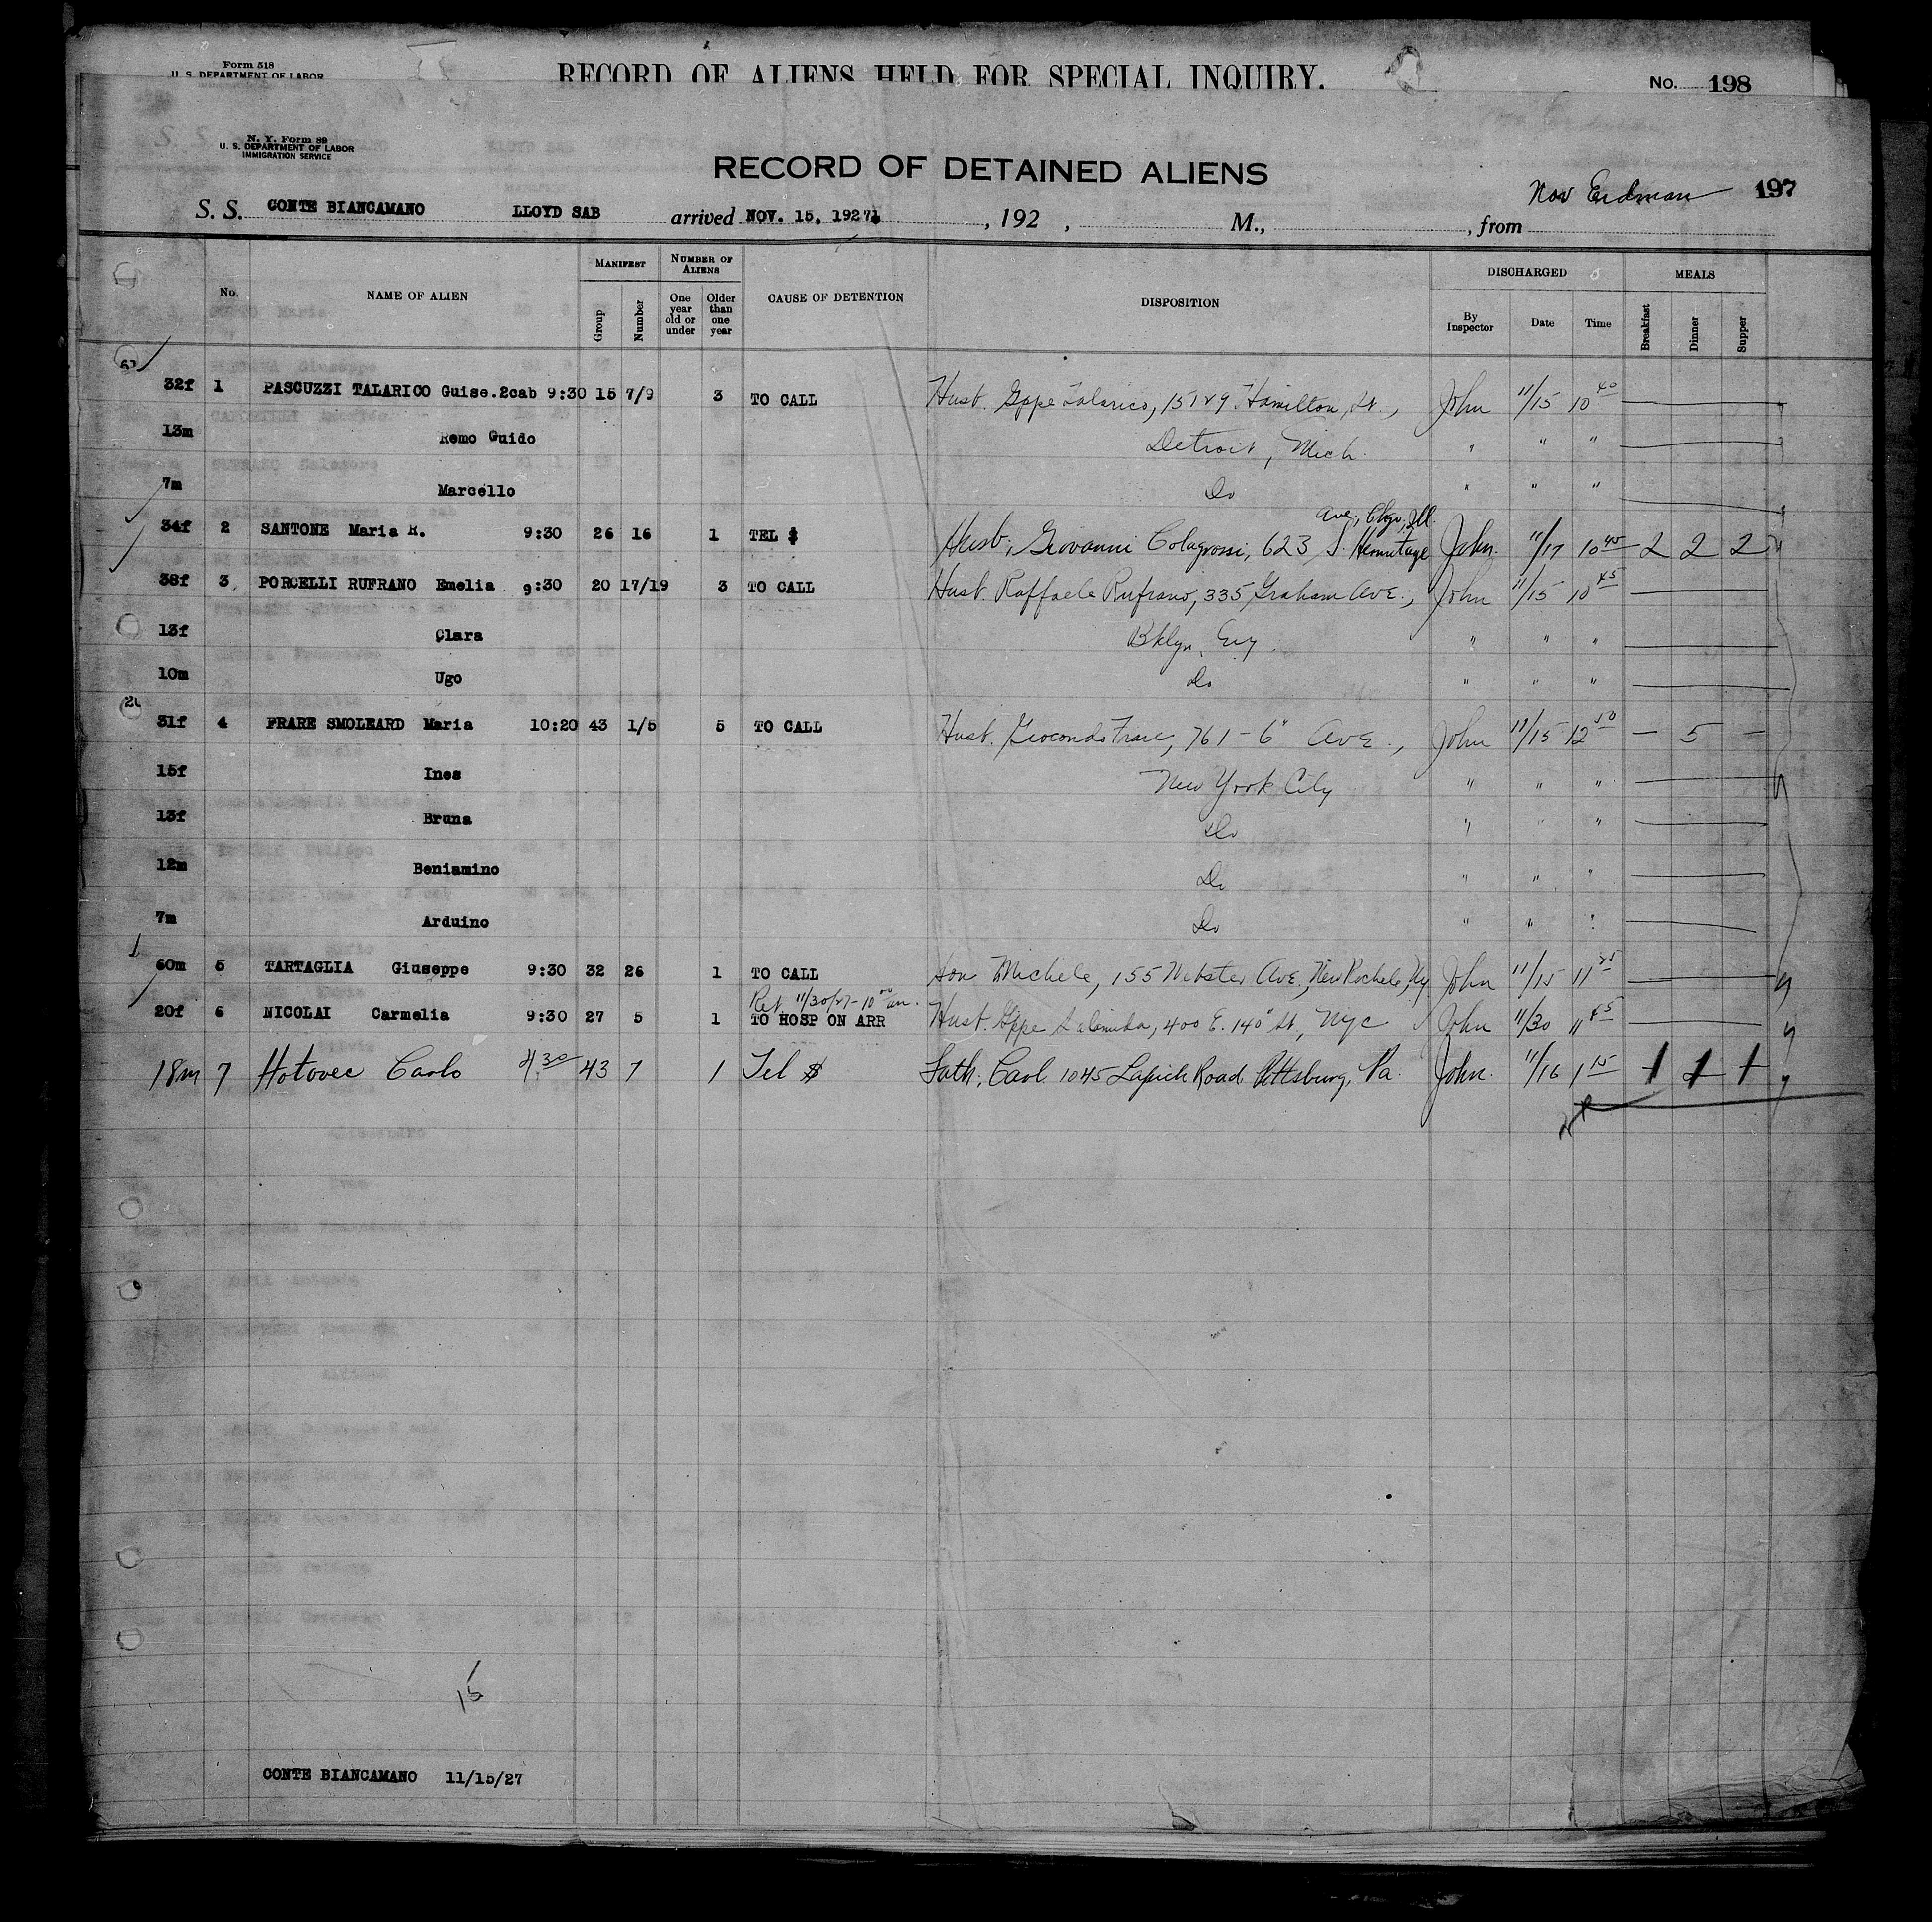 Form 518
U. S. DEPARTMENT OF LABOR
RECORD OF ALIENS HELD FOR SPECIAL INQUIRY.
No. 198
N. Y. Form 89
U. S. DEPARTMENT OF LABOR
IMMIGRATION SERVICE
RECORD OF DETAINED ALIENS
Nov Erdman 197
S. S. CONTE BIANCAMANO LLOYD SAB arrived NOV. 15, 1927 , 192 , M., , from
No. NAME OF ALIEN MANIFEST Group Number NUMBER OF ALIENS One year old or under Older than one year CAUSE OF DETENTION DISPOSITION DISCHARGED By Inspector Date Time MEALS Breakfast Dinner Supper
32f 1 PASCUZZI TALARICO Guise. 2cab 9:30 15 7/9 3 TO CALL Husb. Gppe Talarico, 15129 Hamilton, St., John 11/15 10 40
13m Remo Guido Detroit, Mich. " " "
7m Marcello Do " " "
Ave, Chgo, Ill.
34f 2 SANTONE Maria R. 9:30 26 16 1 TEL $ Husb, Giovanni Colagrossi, 623 S. Hermitage John. 11/17 10 45 2 2 2
38f 3 PORCELLI RUFRANO Emelia 9:30 20 17/19 3 TO CALL Husb. Raffaele Rufrano, 335 Graham Ave., John 11/15 10 45
13f Clara Bklyn, " " "
10m Ugo Do " " "
31f 4 FRARE SMOLEARD Maria 10:20 43 1/5 5 TO CALL Husb. Giocondo Frare, 761 - 6" Ave., John 11/15 12 50 — 5 —
15f Ines New York City " " "
13f Bruna Do " " "
12m Beniamino Do " " "
7m Arduino Do " " "
60m 5 TARTAGLIA Giuseppe 9:30 32 26 1 TO CALL Son Michele, 155 Webster Ave., New Rochele, Ny John 11/15 11
Ret 11/30/27 - 10 00 am.
20f 6 NICOLAI Carmelia 9:30 27 5 1 TO HOSP ON ARR Husb. Gppe 400 E. 140" St, Nyc John 11/30 11 45
18m 7 Hotovec Carlo 4 30 43 7 1 Tel $ Fath, Carl. 1045 Road Pittsburg, Pa. John. 11/16 1 15 1 1 1
15
CONTE BIANCAMANO 11/15/27